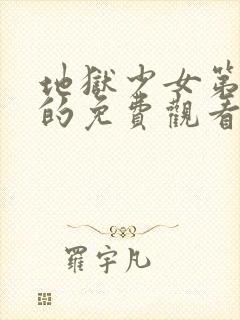 地獄少女第
的免費觀看
羅宇凡